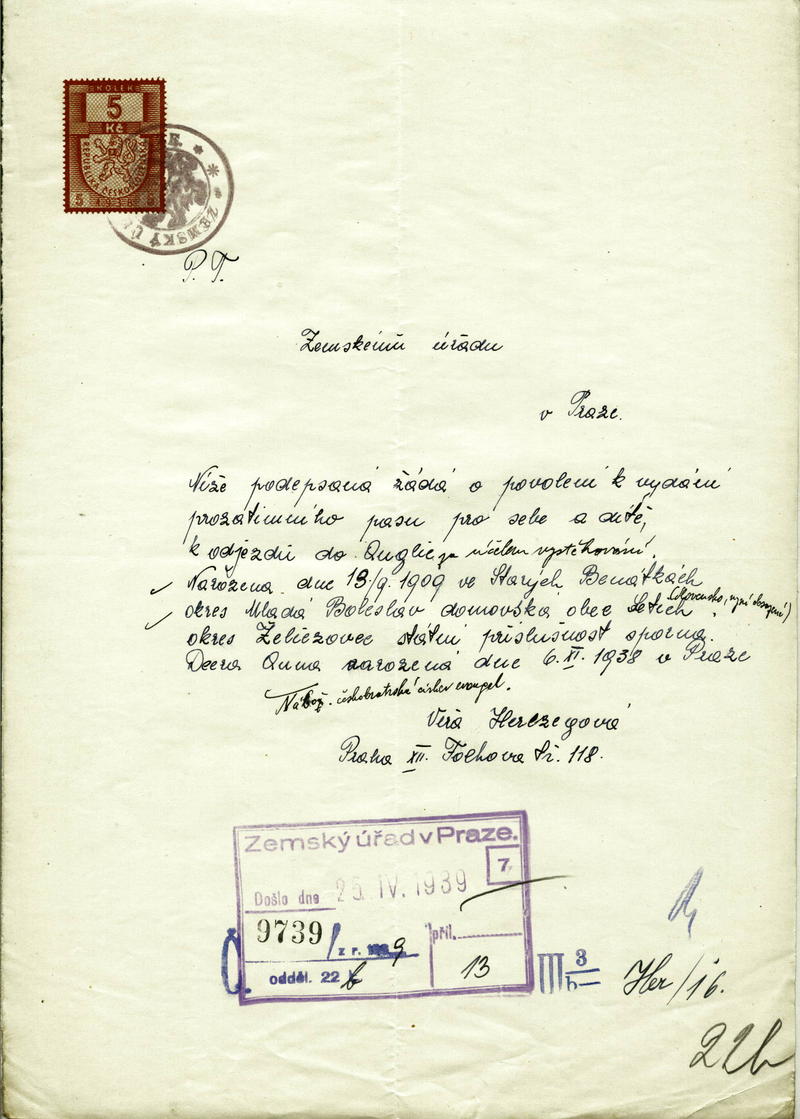 KOLEK
5
Kč
REPUBLIKA ČESKOSLOVENSKÁ
5 1938 5
ZEMSKÝ Ú
P. T.
Zemskému úřadu
v Praze.
Níže podepsaná žádá o povolení k vydání
prozatimního pasu pro sebe a dítě,
k odjezdu do Anglie za účelem vystěhování.
Narozena dne 13/9. 1909 ve Starých Benátkách
okres Mladá Boleslav domovská obec Letich (Slovensko, nyní obsazené)
okres Želiezovec státní příslušnost sporna.
Dcera Anna narozená dne 6. XI. 1938 v Praze
Nábož. českobratrská církev evangel.
Věra Herczegová
Praha XII. Fochova tř. 118.
Zemský úřad v Praze.
7
Došlo dne 25. IV. 1939
9739/ z r. 1939
příl.
Č. odděl. 22 b
13
III 3/b-
Her/16.
22b